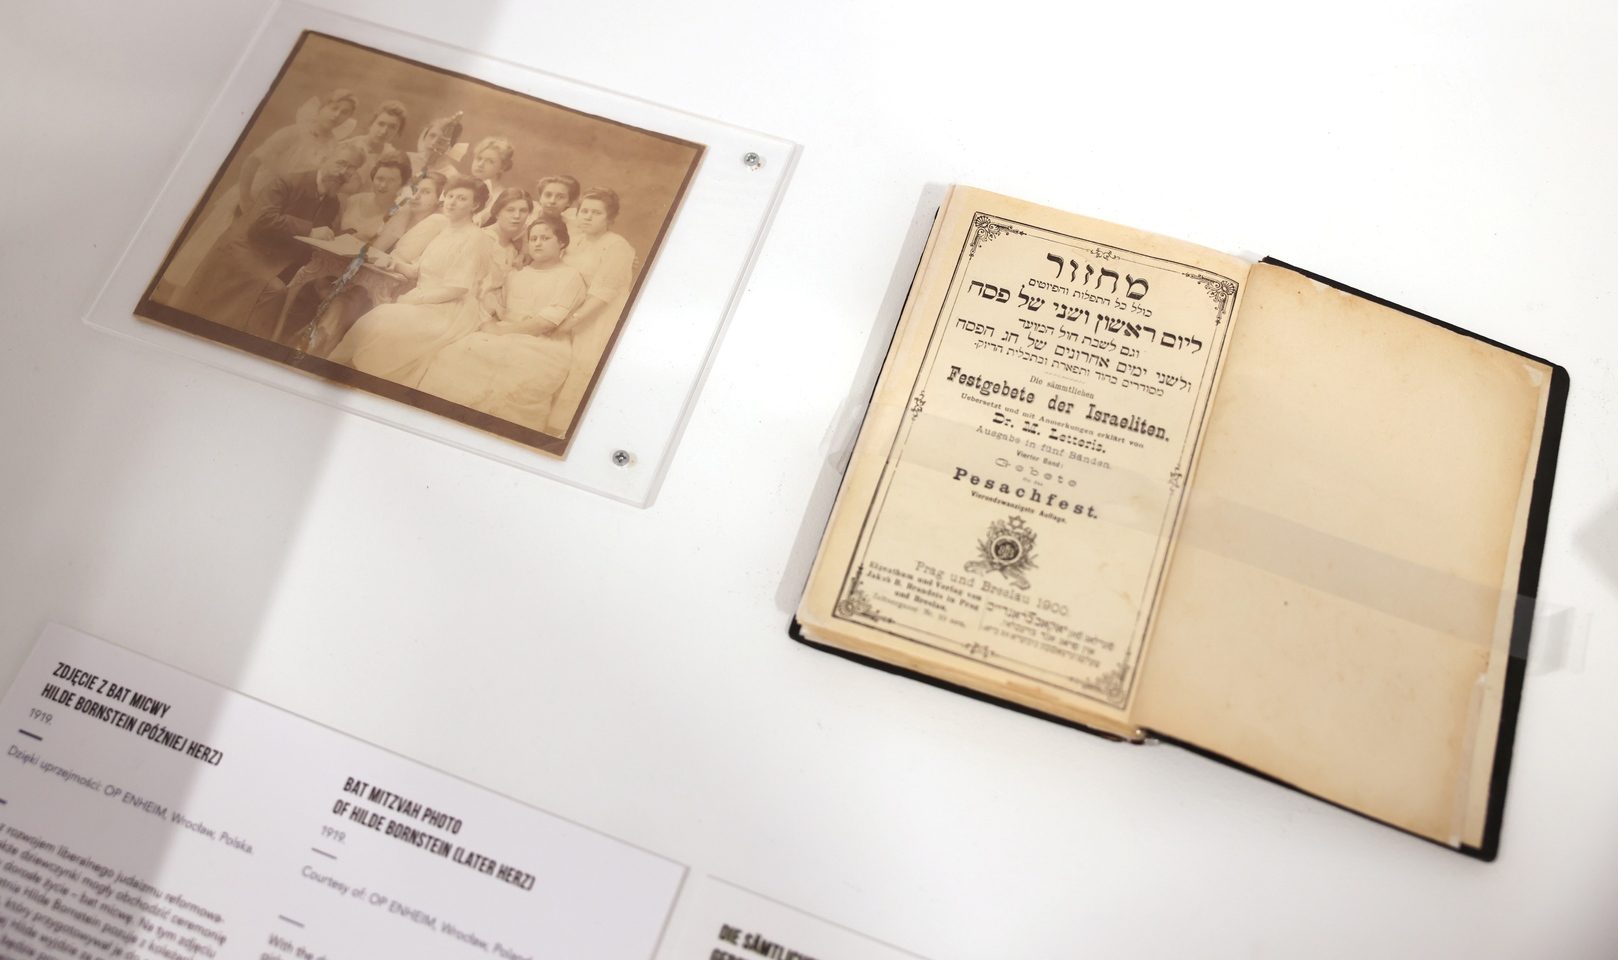 מחזור
כולל כל התפלות והפיוטים
ליום ראשון ושני של פסח
וגם לשבת חול המועד
ולשני ימים אחרונים של חג הפסח
מסודרים בהוד ותפארת ובתכלית הדיוק.
Die sämmtlichen
Festgebete der Israeliten.
Uebersetzt und mit Anmerkungen erklärt von
Dr. M. Letteris.
Ausgabe in fünf Bänden.
Vierter Band:
Gebete
für das
Pesachfest.
Vierundzwanzigste Auflage.
Prag und Breslau 1900.
Eigenthum und Verlag von
Jakob B. Brandeis in Prag
und Breslau,
ZDJĘCIE Z BAT MICWY
HILDE BORNSTEIN (PÓŹNIEJ HERZ)
1919.
Dzięki uprzejmości: OP ENHEIM, Wrocław, Polska.
z rozwojem liberalnego judaizmu reformowa-
także dziewczynki mogły obchodzić ceremonię
dorosłe życie – bat micwę. Na tym zdjęciu
Hilde Bornstein pozuje z koleżankami
który przygotowywał je do
BAT MITZVAH PHOTO
OF HILDE BORNSTEIN (LATER HERZ)
1919.
Courtesy of: OP ENHEIM, Wrocław, Poland
With the d
DIE SÄMTLICHE